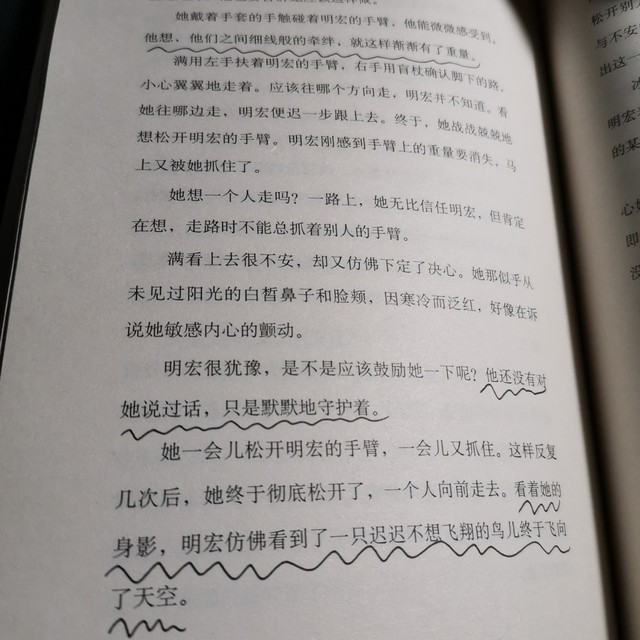 她戴着手套的手触碰着明宏的手臂，他能微微感受到，
他想，他们之间细线般的牵绊，就这样渐渐有了重量。
满用左手扶着明宏的手臂，右手用盲杖确认脚下的路，
小心翼翼地走着。应该往哪个方向走，明宏并不知道。看
她往哪边走，明宏便迟一步跟上去。终于，她战战兢兢地
想松开明宏的手臂。明宏刚感到手臂上的重量要消失，马
上又被她抓住了。
她想一个人走吗？一路上，她无比信任明宏，但肯定
在想，走路时不能总抓着别人的手臂。
满看上去很不安，却又仿佛下定了决心。她那似乎从
未见过阳光的白皙鼻子和脸颊，因寒冷而泛红，好像在诉
说她敏感内心的颤动。
明宏很犹豫，是不是应该鼓励她一下呢？他还没有对
她说过话，只是默默地守护着。
她一会儿松开明宏的手臂，一会儿又抓住。这样反复
几次后，她终于彻底松开了，一个人向前走去。看着她的
身影，明宏仿佛看到了一只迟迟不想飞翔的鸟儿终于飞向
了天空。
松开别
与不安
出这一
明宏
的某
即